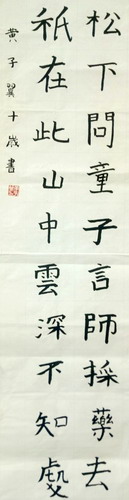 松下問童子言師採藥去
祇在此山中雲深不知處
黃子翼十歲書